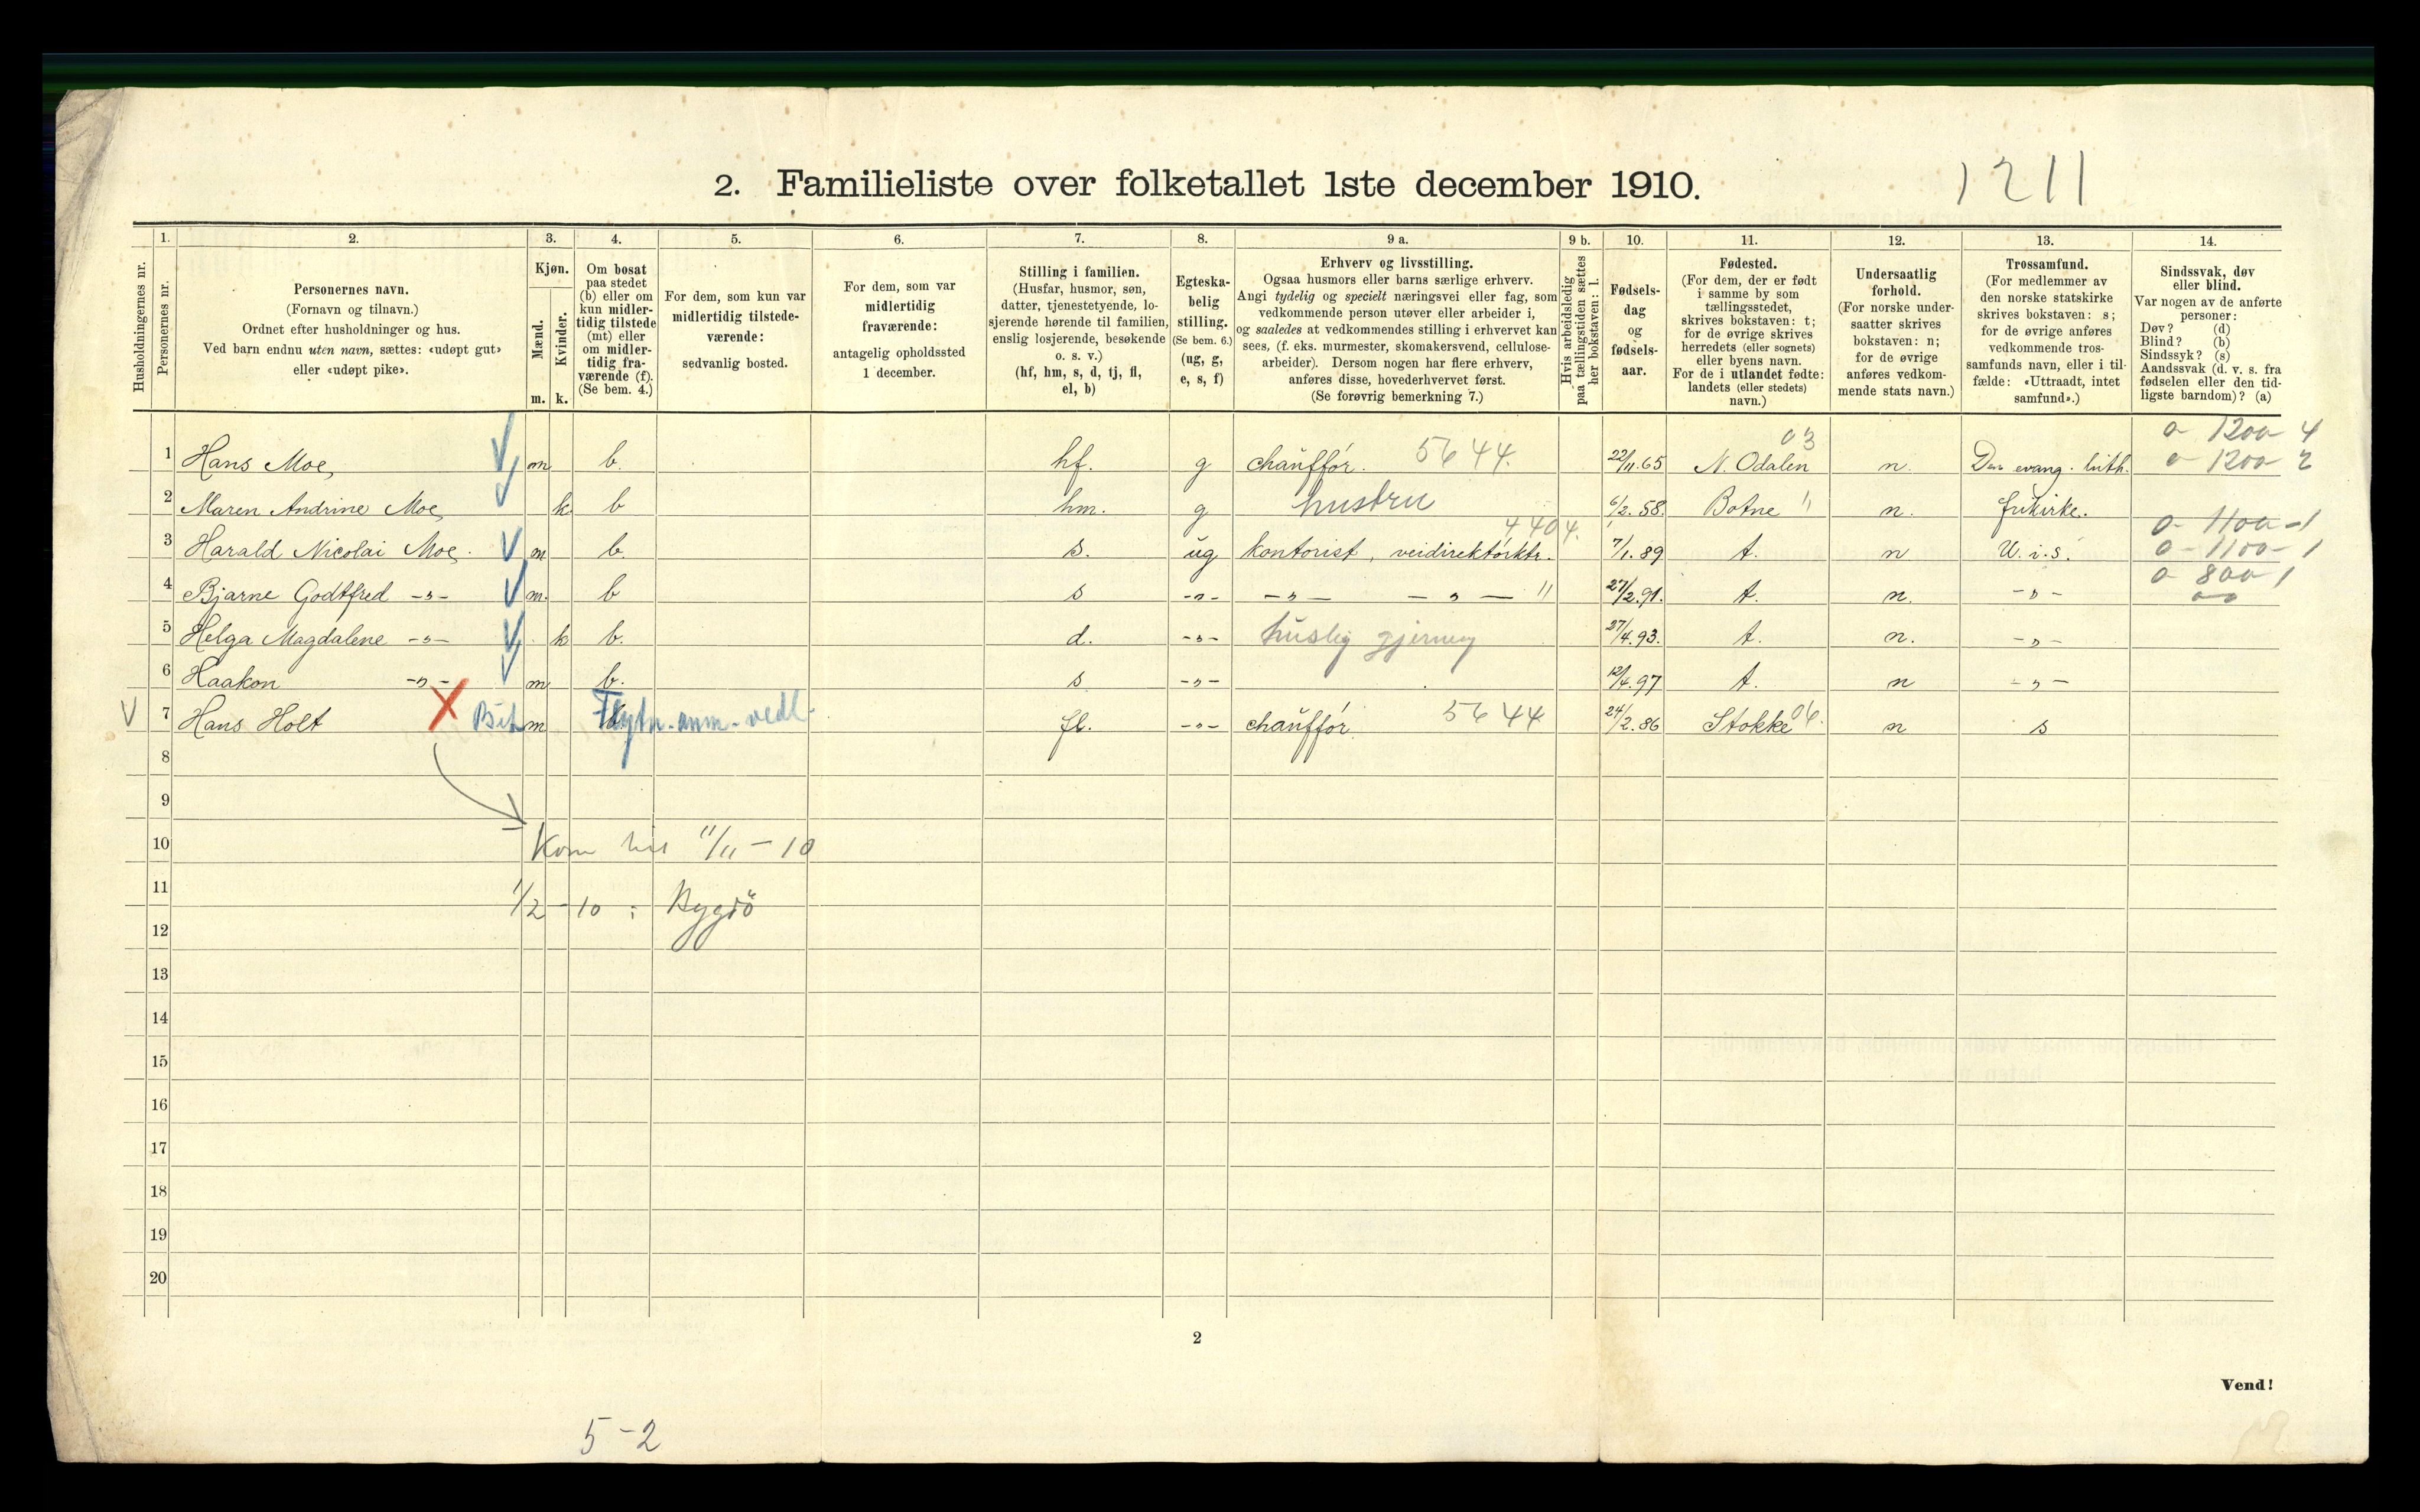 2. Familieliste over folketallet 1ste december 1910.
1211
Husholdningernes nr.
1.
Personernes nr.
2.
Personernes navn.
(Fornavn og tilnavn.)
Ordnet efter husholdninger og hus.
Ved barn endnu uten navn, sættes: «udøpt gut»
eller «udøpt pike».
3.
Kjøn.
Mænd.
Kvinder.
m. k.
4.
Om bosat
paa stedet
(b) eller om
kun midler-
tidig tilstede
(mt) eller
om midler-
tidig fra-
værende (f).
(Se bem. 4.)
5.
For dem, som kun var
midlertidig tilstede-
værende:
sedvanlig bosted.
6.
For dem, som var
midlertidig
fraværende:
antagelig opholdssted
1 december.
7.
Stilling i familien.
(Husfar, husmor, søn,
datter, tjenestetyende, lo-
sjerende hørende til familien,
enslig losjerende, besøkende
o. s. v.)
(hf, hm, s, d, tj, fl,
el, b)
8.
Egteska-
belig
stilling.
(Se bem. 6.)
(ug, g,
e, s, f)
9 a.
Erhverv og livsstilling.
Ogsaa husmors eller barns særlige erhverv.
Angi tydelig og specielt næringsvei eller fag, som
vedkommende person utøver eller arbeider i,
og saaledes at vedkommendes stilling i erhvervet kan
sees, (f. eks. murmester, skomakersvend, cellulose-
arbeider). Dersom nogen har flere erhverv,
anføres disse, hovederhvervet først.
(Se forøvrig bemerkning 7.)
9 b.
Hvis arbeidsledig
paa tællingstiden sættes
her bokstaven: l.
10.
Fødsels-
dag
og
fødsels-
aar.
11.
Fødested.
(For dem, der er født
i samme by som
tællingsstedet,
skrives bokstaven: t;
for de øvrige skrives
herredets (eller sognets)
eller byens navn.
For de i utlandet fødte:
landets (eller stedets)
navn.)
12.
Undersaatlig
forhold.
(For norske under-
saatter skrives
bokstaven: n;
for de øvrige
anføres vedkom-
mende stats navn.)
13.
Trossamfund.
(For medlemmer av
den norske statskirke
skrives bokstaven: s;
for de øvrige anføres
vedkommende tros-
samfunds navn, eller i til-
fælde: «Uttraadt, intet
samfund».)
14.
Sindssvak, døv
eller blind.
Var nogen av de anførte
personer:
Døv? (d)
Blind? (b)
Sindssyk? (s)
Aandssvak (d. v. s. fra
fødselen eller den tid-
ligste barndom)? (a)
0 1200 4
1 Hans Moe, m b. hf. g chauffør. 5644. 22/11.65 N. Odalen 03 n. Den evang. luth. 0 1200 2
2 Maren Andrine Moe k b hm. g hustru 6/2.58. Botne " n. frikirke.
3 Harald Nicolai Moe. m b. s. ug kontorist, veidirektørktr. 4404. 7/1.89 t. n U.i.s. 0 1100-1
0-1100-1
4 Bjarne Godtfred -"- m. b s -"- -"- -"- " 27/2.91. t. n. -"- 0 800 1
5 Helga Magdalene -"- k b. d. -"- huslig gjerning 27/4.93. t. n. -"-
6 Haakon -"- m b. s -"- 12/4.97 t. n -"-
7 Hans Holt m fl. -"- chauffør 5644 24/2.86 Stokke 06. n s
8
9
10 Kom hit 11/11-10
11 1/2-10: Bygdö
12
13
14
15
16
17
18
19
20
2
Vend!
5-2